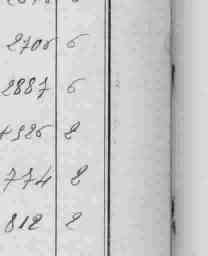 2706 6
2887 6
1326 2
774 2
812 2